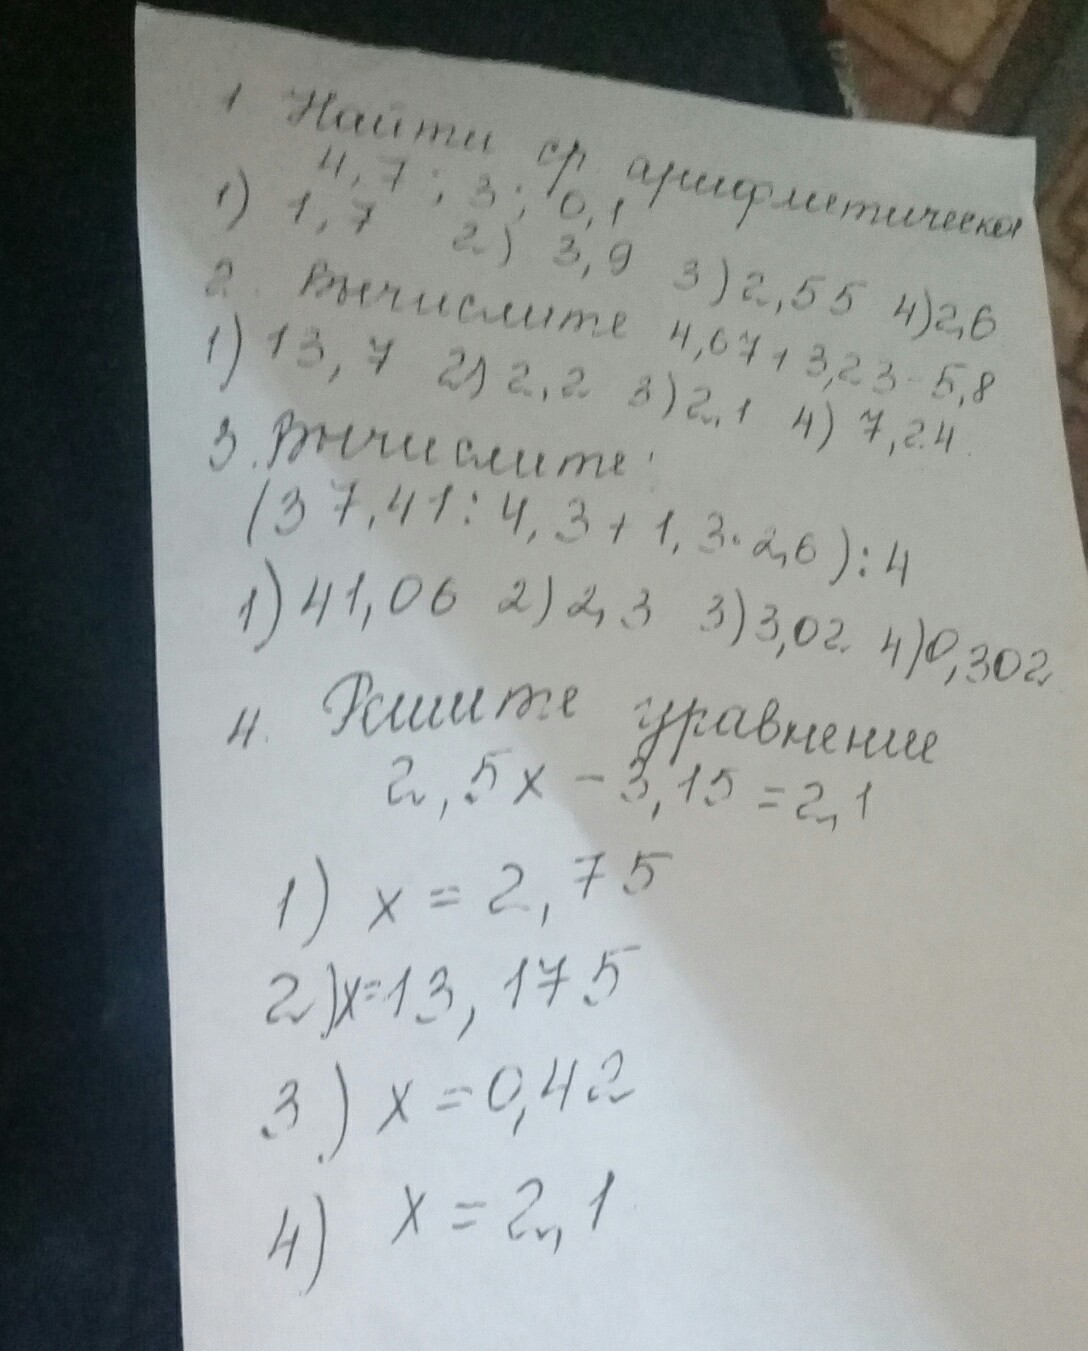 1 Найти ср арифметическое
4,7; 3; 0,1
1) 1,7 2) 3,9 3) 2,55 4) 2,6
2. Вычислите 4,67+3,23-5,8
1) 13,7 2) 2,2 3) 2,1 4) 7,24
3. Вычислите:
(37,41:4,3+1,3·2,6):4
1) 41,06 2) 2,3 3) 3,02 4) 0,302
4. Решите уравнение
2,5x-3,15=2,1
1) x=2,75
2) x=13,175
3) x=0,42
4) x=2,1